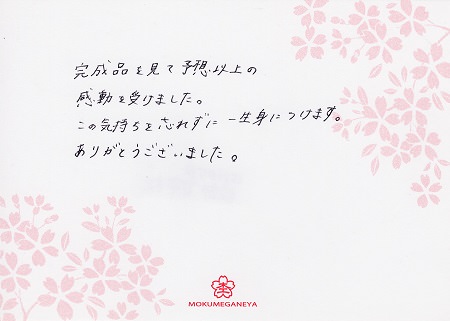 完成品を見て予想以上の
感動を受けました。
この気持ちを忘れずに一生身につけます。
ありがとうございました。
MOKUMEGANEYA